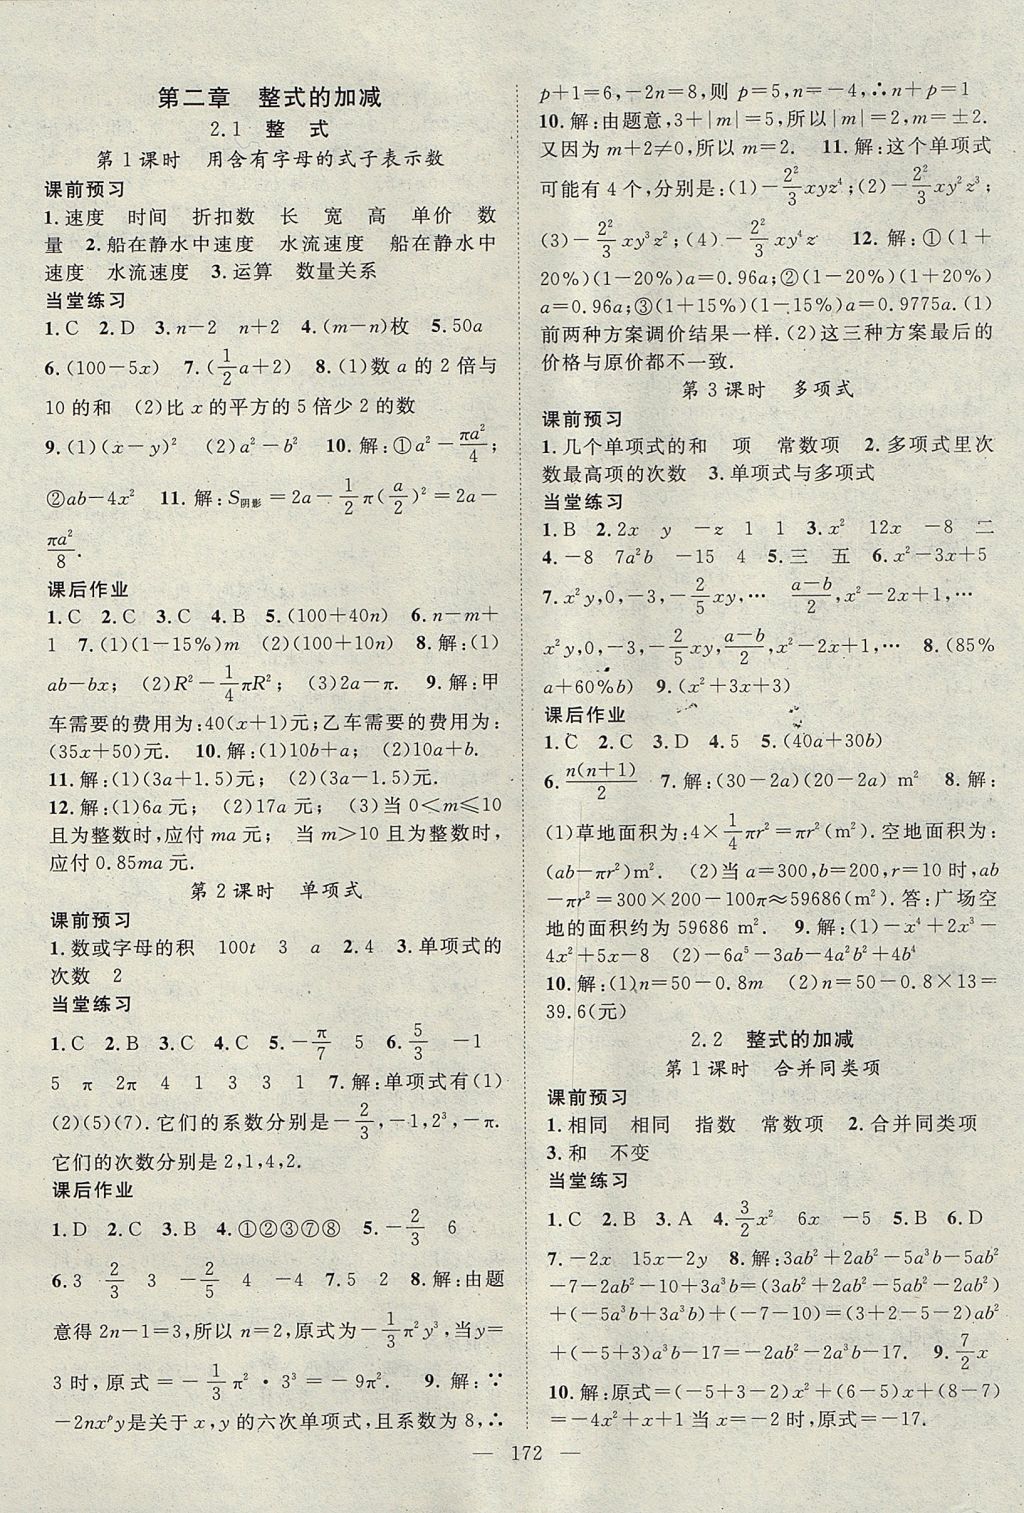 第二章　整式的加减
2.1　整　式
第1课时　用含有字母的式子表示数
课前预习
1.速度　时间　折扣数　长　宽　高　单价　数
量　2.船在静水中速度　水流速度　船在静水中
速度　水流速度　3.运算　数量关系
当堂练习
1.C　2.D　3.n－2　n＋2　4.(m－n)枚　5.50a
6.(100－5x)　7.(\frac{1}{2}a＋2)　8.(1)数a的2倍与
10的和　(2)比x的平方的5倍少2的数
9.(1)(x－y)²　(2)a²－b²　10.解:①a²－\frac{πa²}{4};
②ab－4x²　11.解:S阴影＝2a－\frac{1}{2}π(\frac{a}{2})²＝2a－
\frac{πa²}{8}.
课后作业
1.C　2.C　3.C　4.B　5.(100＋40n)　6.n－m＋
1　7.(1)(1－15%)m　(2)(100＋10n)　8.解:(1)
ab－bx;　(2)R²－\frac{1}{4}πR²;　(3)2a－π.　9.解:甲
车需要的费用为:40(x＋1)元;乙车需要的费用为:
(35x＋50)元.　10.解:(1)10b＋a;　(2)10a＋b.
11.解:(1)(3a＋1.5)元;　(2)(3a－1.5)元.
12.解:(1)6a元;　(2)17a元;　(3)当0＜m≤10
且为整数时,应付ma元;　当m＞10且为整数时,
应付0.85ma元.
第2课时　单项式
课前预习
1.数或字母的积　100t　3　a　2.4　3.单项式的
次数　2
当堂练习
1.C　2.B　3.C　4.C　5.－\frac{π}{7}　5　6.\frac{5}{3}　－1
5　π　2π　4　1　3　3　1　7.解:单项式有(1)
(2)(5)(7).它们的系数分别是－\frac{2}{3},－1,2³,－π.
它们的次数分别是2,1,4,2.
课后作业
1.D　2.C　3.C　4.①②③⑦⑧　5.－\frac{2}{3}　6
6.3　\frac{2}{3}　3　－\frac{2}{5}　4　－4　7.5　2　8.解:由题
意得2n－1＝3,所以n＝2,原式为－\frac{1}{3}π²y³,当y＝
3时,原式＝－\frac{1}{3}π²·3³＝－9π².　9.解:∵
－2nxᵖy是关于x,y的六次单项式,且系数为8,∴
p＋1＝6,－2n＝8,则p＝5,n＝－4,∴n＋p＝1
10.解:由题意,3＋|m|＝5,所以|m|＝2,m＝±2.
又因为m＋2≠0,所以m＝2.　11.解:这个单项式
可能有4个,分别是:(1)－\frac{2²}{3}xyz⁴;(2)－\frac{2²}{3}xy²z³;
(3)－\frac{2²}{3}xy³z²;(4)－\frac{2²}{3}xy⁴z　12.解:①(1＋
20%)(1－20%)a＝0.96a;②(1－20%)(1＋20%)
a＝0.96a;③(1＋15%)(1－15%)a＝0.9775a.(1)
前两种方案调价结果一样.(2)这三种方案最后的
价格与原价都不一致.
第3课时　多项式
课前预习
1.几个单项式的和　项　常数项　2.多项式里次
数最高项的次数　3.单项式与多项式
当堂练习
1.B　2.2x　y　－z　1　1　3.x²　12x　－8　二
4.－8　7a²b　－15　4　5.三　五　6.x²－3x＋5
7.x²y,0,－3,－\frac{2}{5}xy,…　\frac{a－b}{2},x²－2x＋1,…
x²y,0,－3,－\frac{2}{5}xy,\frac{a－b}{2},x²－2x＋1,…　8.(85%
a＋60%b)　9.(x²＋3x＋3)
课后作业
1.C　2.C　3.D　4.5　5.(40a＋30b)
6.\frac{n(n＋1)}{2}　7.解:(30－2a)(20－2a) m²　8.解:
(1)草地面积为:4×\frac{1}{4}πr²＝πr²(m²).空地面积为:
(ab－πr²)m².　(2)当a＝300,b＝200,r＝10时,ab
－πr²＝300×200－100π≈59686 m².答:广场空
地的面积约为59686 m².　9.解:(1)－x⁴＋2x³－
4x²＋5x－8　(2)－6a⁵－3ab－4a²b²＋4b⁴
10.解:(1)n＝50－0.8m　(2)n＝50－0.8×13＝
39.6(元)
2.2　整式的加减
第1课时　合并同类项
课前预习
1.相同　相同　指数　常数项　2.合并同类项
3.和　不变
当堂练习
1.C　2.B　3.A　4.\frac{3}{2}x²　6x　－5　5.B　6.D
7.－2x　15x－2y　8.解:3ab²＋2ab²－5a³b－5ab²
－7－2ab²－10＋3a³b＝(3ab²＋2ab²－5ab²－2ab²)
＋(－5a³b＋3a³b)＋(－7－10)＝(3＋2－5－2)ab²
＋(－5＋3)a³b－17＝－2ab²－2a³b－17.　9.\frac{7}{2}x
10.解:原式＝(－5＋3－2)x²＋(－5＋6)x＋(8－7)
＝－4x²＋x＋1当x＝－2时,原式＝－17.
— 172 —